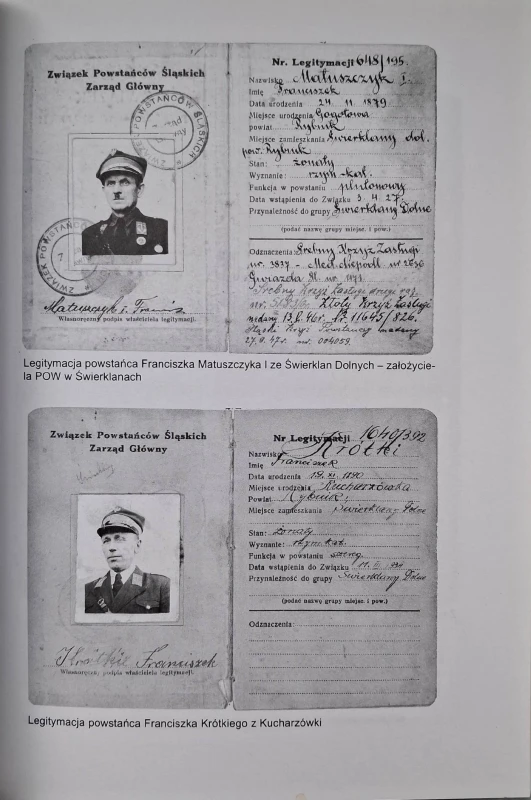 Związek Powstańców Śląskich
Zarząd Główny
ZWIĄZEK POWSTAŃCÓW ŚLĄSKICH
Matuszczyk I. Franc.
Własnoręczny podpis właściciela legitymacji.
Nr. Legitymacji 648/195.
Nazwisko Matuszczyk I.
Imię Franciszek
Data urodzenia 24. 11. 1879
Miejsce urodzenia Gogołowa
powiat Rybnik
Miejsce zamieszkania Świerklany dol.
pow. Rybnik
Stan: żonaty
Wyznanie: rzym-kat.
Funkcja w powstaniu plutonowy
Data wstąpienia do Związku 3. 4. 27
Przynależność do grupy Świerklany Dolne
(podać nazwę grupy miejsc. i pow.)
Odznaczenia: Srebny Krzyż Zasługi
nr. 3837 - Med. niepodl. nr 2636
Gwiazda Śl. nr. 1171.
Srebny Krzyż Zasługi
nr. Złoty Krzyż Zasługi
nadany 13. 6. 46r. nr. 11645/826.
Śląski Krzyż Powstańczy nadany
27. 9. 47r. nr. 004059.
Legitymacja powstańca Franciszka Matuszczyka I ze Świerklan Dolnych – założycie-
la POW w Świerklanach
Związek Powstańców Śląskich
Zarząd Główny
Krótki Franciszek
Własnoręczny podpis właściciela legitymacji.
Nr Legitymacji 1640/392
Nazwisko Krótki
Imię Franciszek
Data urodzenia 19. XI. 1890
Miejsce urodzenia Kucharzówka
Powiat Rybnik
Miejsce zamieszkania Świerklany Dolne
Stan: żonaty
Wyznanie: rzym. kat.
Funkcja w powstaniu szereg.
Data wstąpienia do Związku
Przynależność do grupy Świerklany Dolne
(podać nazwę grupy miejsc. i pow.)
Odznaczenia:
Legitymacja powstańca Franciszka Krótkiego z Kucharzówki